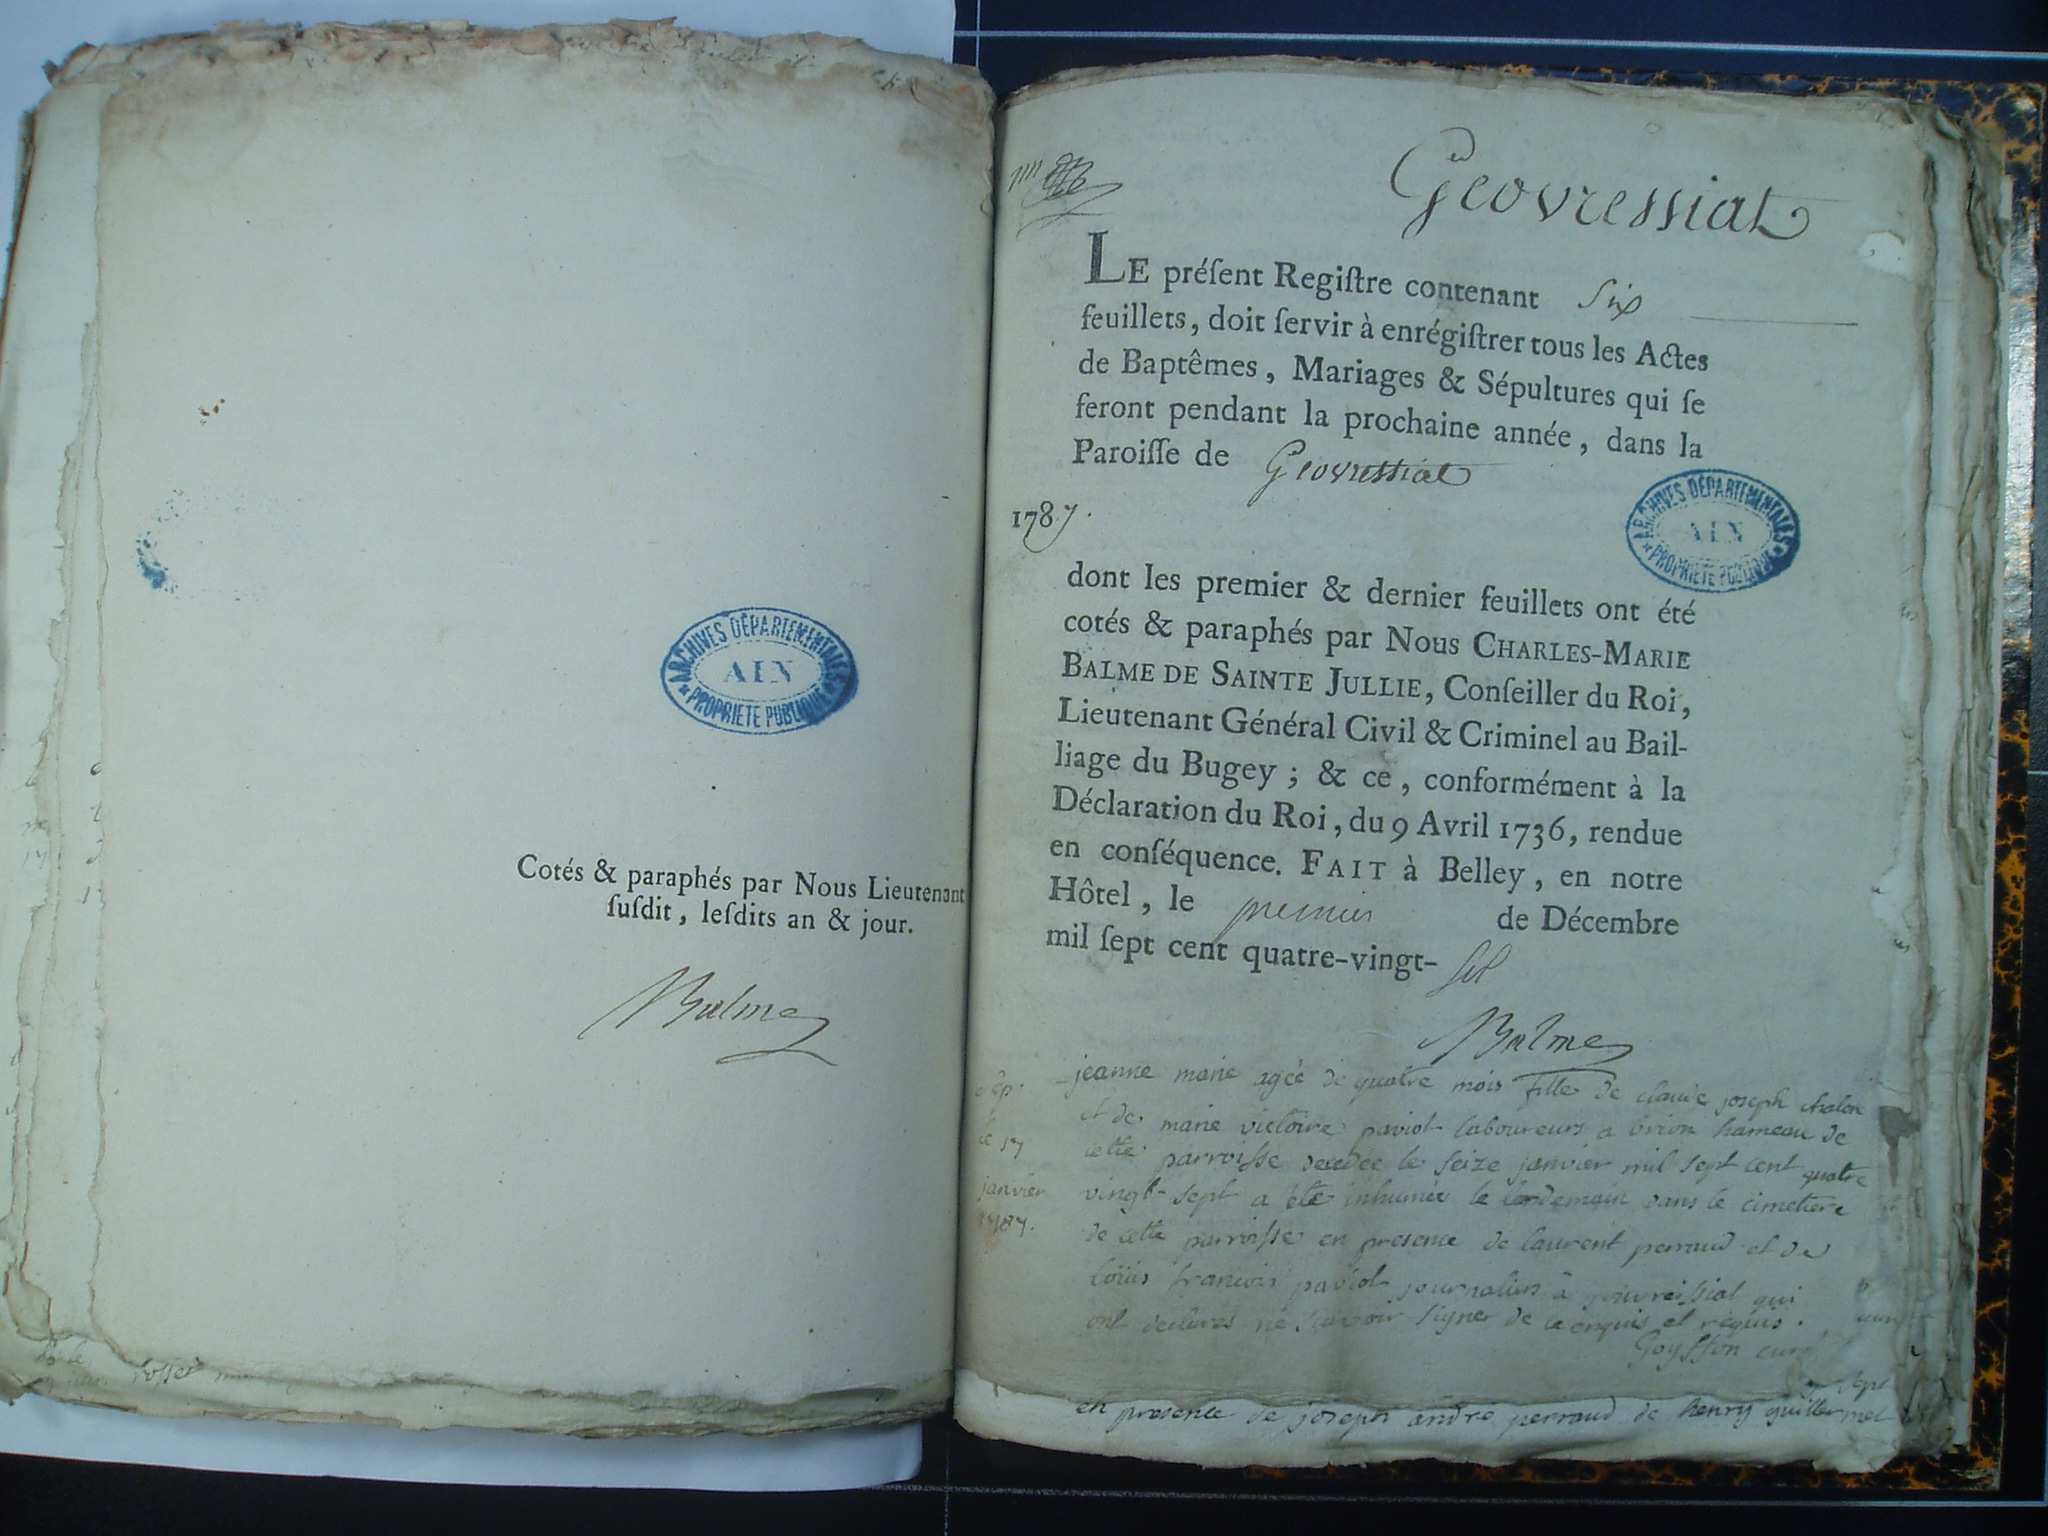 ARCHIVES DÉPARTEMENTALES
AIN
PROPRIÉTÉ PUBLIQUE
Cotés & paraphés par Nous Lieutenant
ſuſdit, leſdits an & jour.
Balme
Geovressiat
LE préſent Regiſtre contenant Six
feuillets, doit ſervir à enrégiſtrer tous les Actes
de Baptêmes, Mariages & Sépultures qui ſe
feront pendant la prochaine année, dans la
Paroiſſe de Geovressiat
1787.
ARCHIVES DÉPARTEMENTALES
AIN
PROPRIÉTÉ PUBLIQUE
dont les premier & dernier feuillets ont été
cotés & paraphés par Nous CHARLES-MARIE
BALME DE SAINTE JULLIE, Conſeiller du Roi,
Lieutenant Général Civil & Criminel au Bail-
liage du Bugey ; & ce, conformément à la
Déclaration du Roi, du 9 Avril 1736, rendue
en conſéquence. FAIT à Belley, en notre
Hôtel, le premier de Décembre
mil ſept cent quatre-vingt-
Balme
jeanne marie agée de quatre mois fille de claude joseph chalon
et de marie victoire paviot laboureurs a hameau de
cette parroisse decedée le seize janvier mil sept cent quatre
vingt-sept a été inhumée le lendemain dans le cimetiere
de cette parroisse en presence de laurent perraud et de
loüis francois paviot journaliers a qui
ont declarés ne scavoir signer de ce enquis et requis.
sep.
le 17
janvier
1787.
Goyffon curé
en presence de joseph andre perraud de henry guillermet